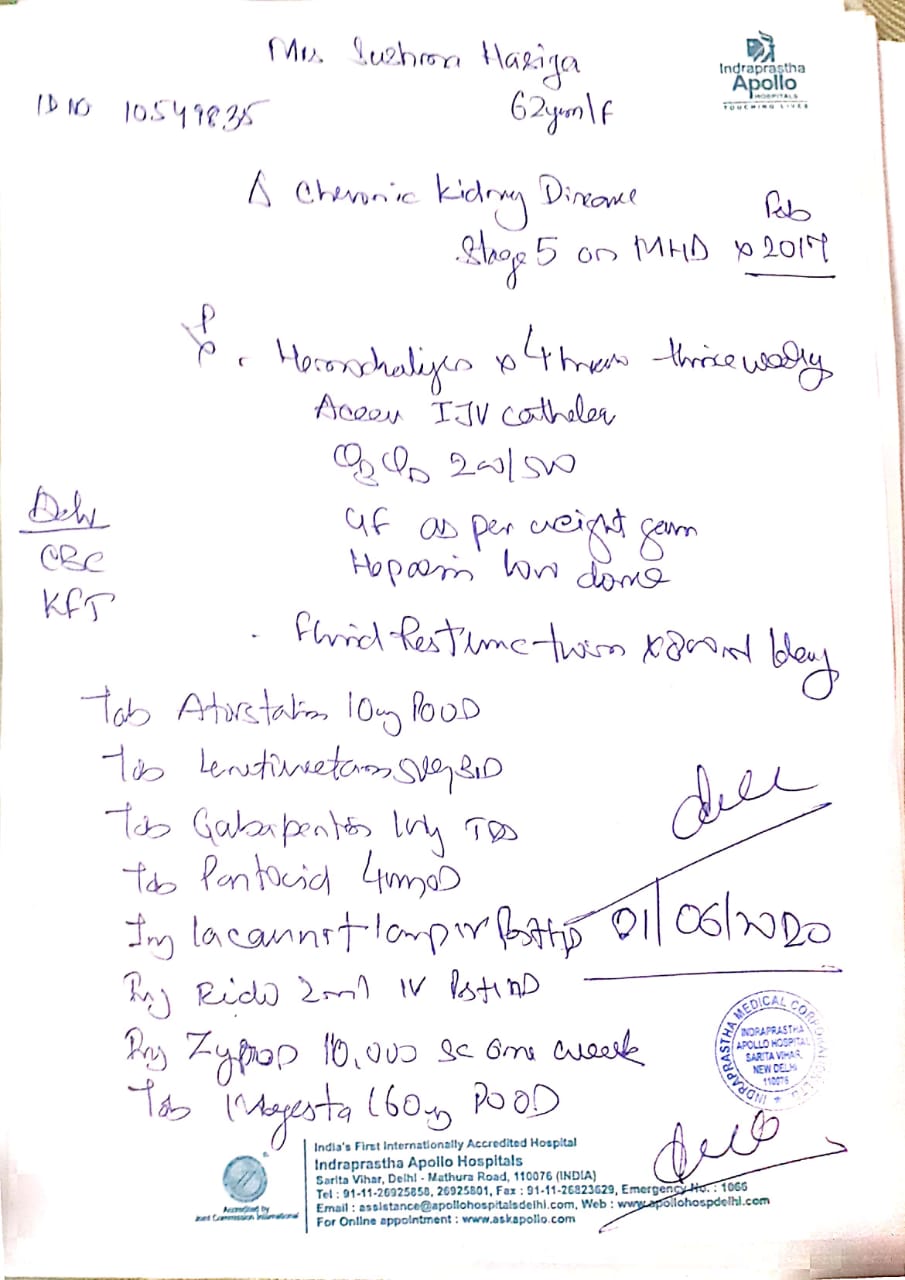 Mrs. Hariga
Indraprastha
Apollo
HOSPITALS
TOUCHING LIVES
ID NO 10549835
62 /F
Δ Chronic Kidney Disease
Feb
Stage 5 on MHD x 2017
Hemodialysis x 4 thrice weekly
Access IJV catheter
QB QD 200/500
UF as per weight gain
Heparin low dose
Adv
CBC
KFT
Fluid Restriction x 800 ml /day
Tab 10mg PO OD
Tab BID
Tab Gabapentin TDS
Tab Pantocid 40mg OD
Inj 1amp IV Post HD
01/06/2020
Inj 2ml IV Post HD
Inj Zyrop 10,000 SC once week
Tab Magesta 160mg PO OD
INDRAPRASTHA MEDICAL CORPORATION LTD
INDRAPRASTHA
APOLLO HOSPITAL
SARITA VIHAR,
NEW DELHI
110076
Accredited by
Joint Commission International
India's First Internationally Accredited Hospital
Indraprastha Apollo Hospitals
Sarita Vihar, Delhi - Mathura Road, 110076 (INDIA)
Tel : 91-11-26925858, 26925801, Fax : 91-11-26823629, Emergency No. : 1066
Email : assistance@apollohospitalsdelhi.com, Web : www.apollohospdelhi.com
For Online appointment : www.askapollo.com